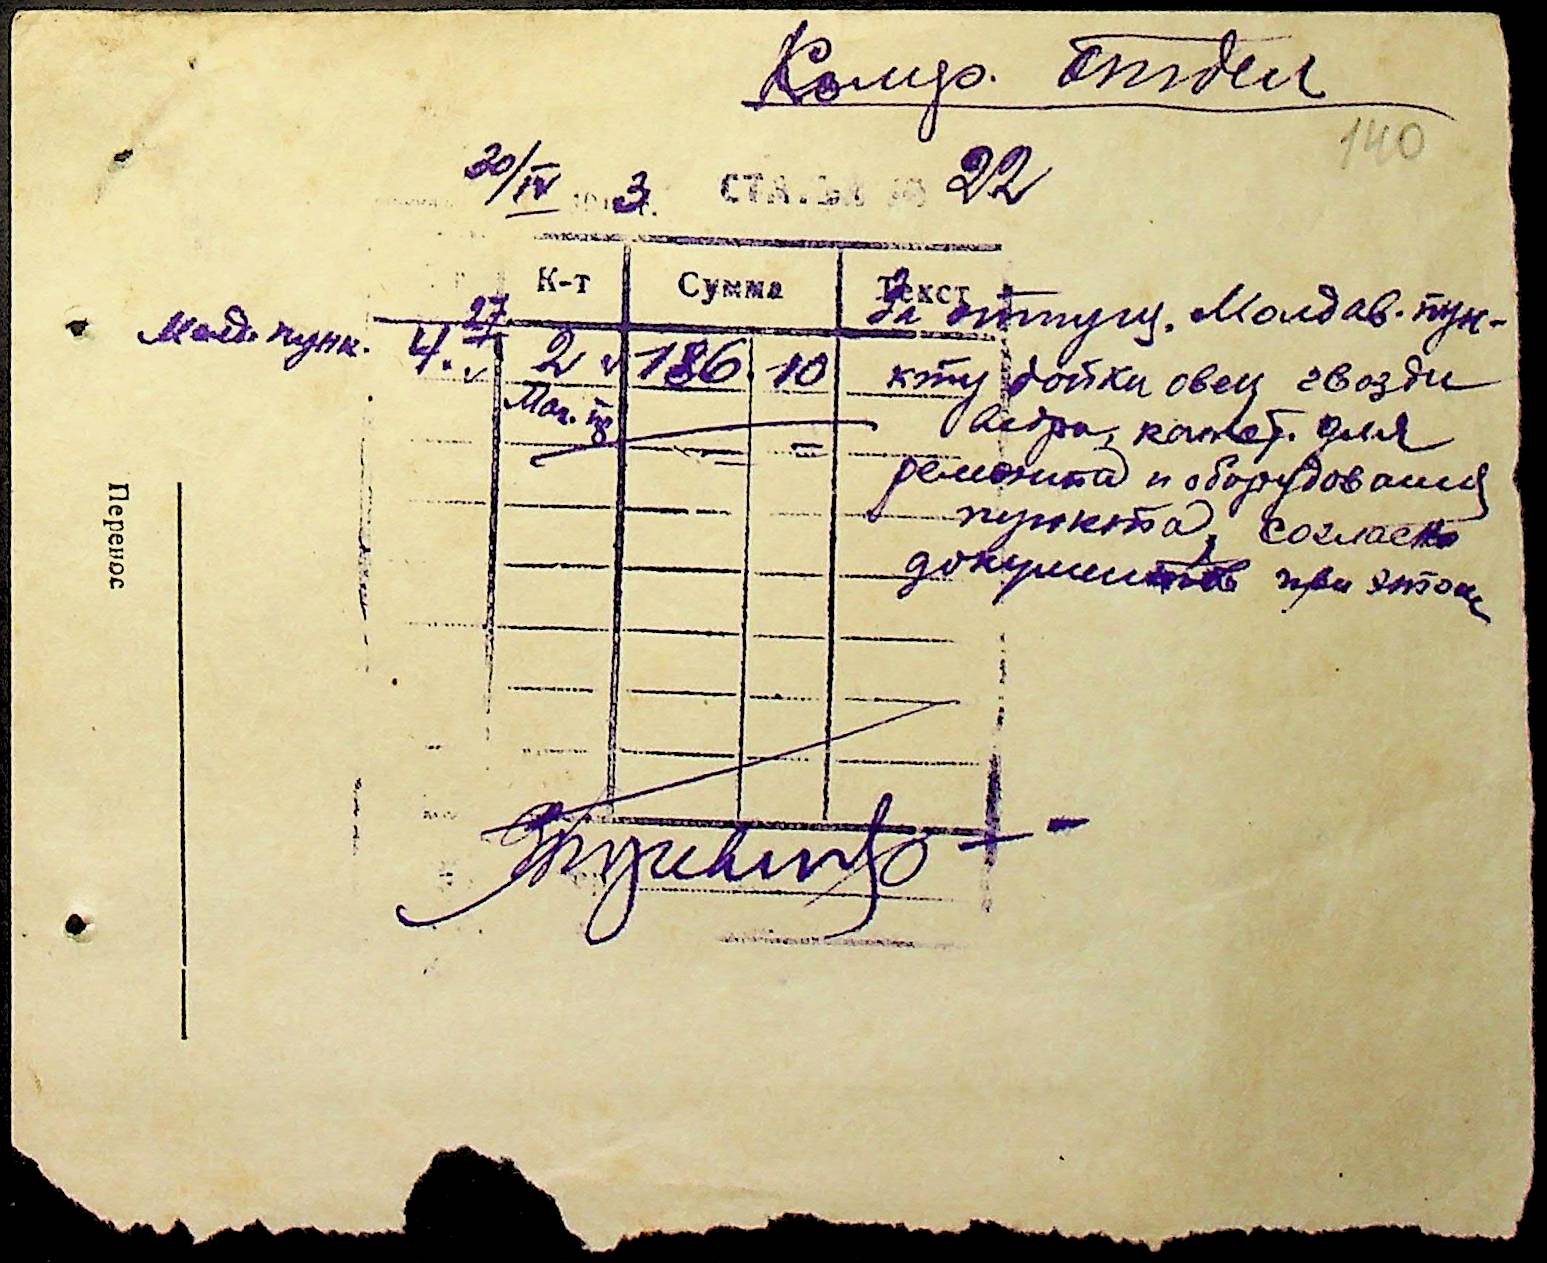 Комр. Отдел
140
30/IV 3. СТАТЬЯ № 22
К-т Сумма Текст
Молд. пунк. 4. 27 2 186.10
Маг.
За отпущ. Молдав. пун-
кту дойки овец гвозди
ведра, для
ремонта и оборудования
пункта, согласно
документов при этом
Перенос